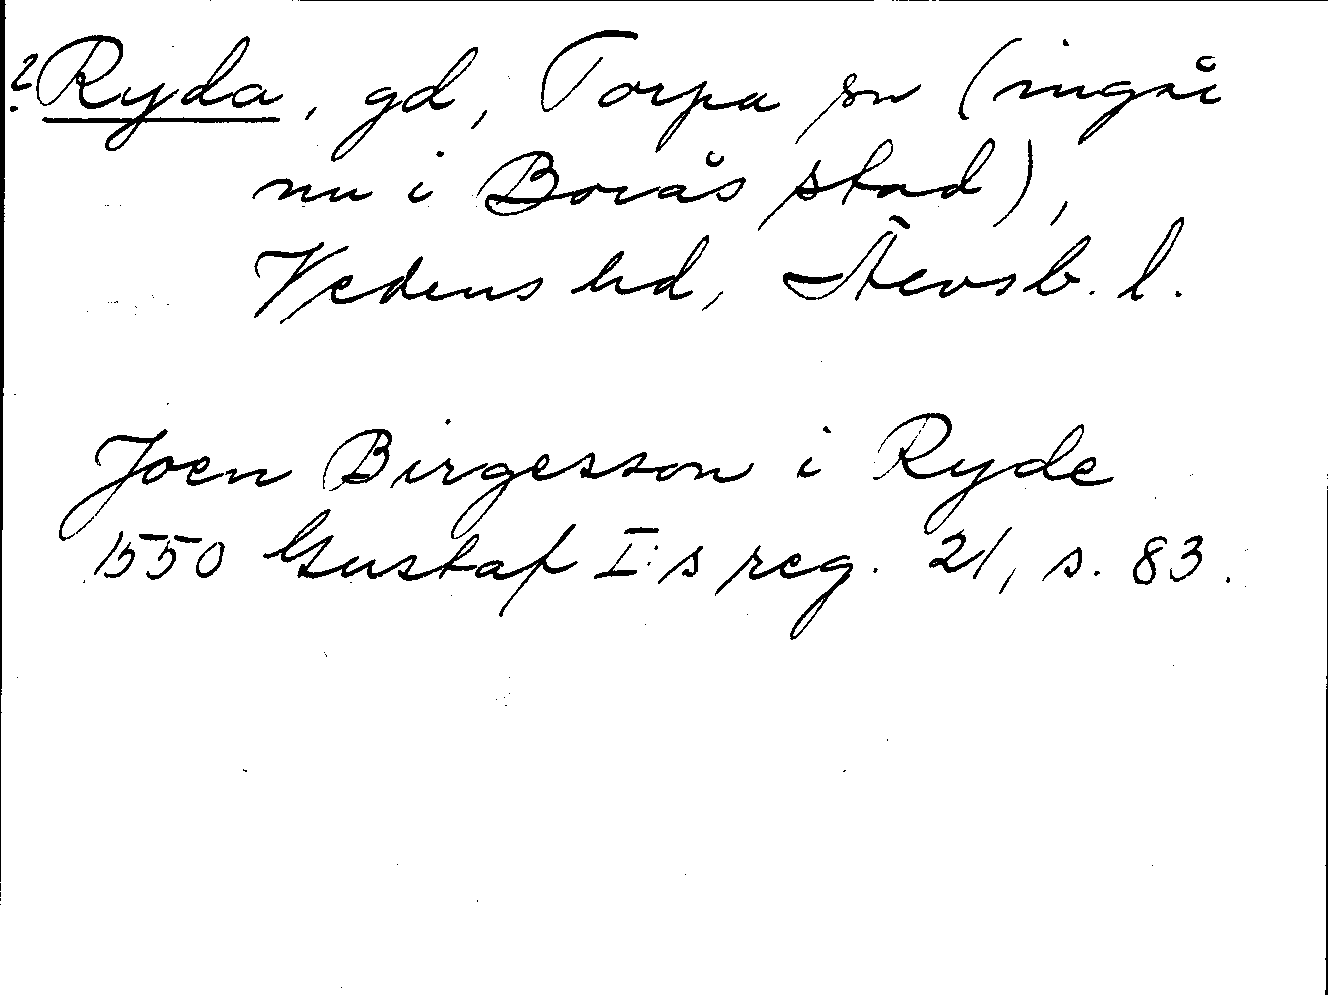 ? Ryda, gd, Torpa sn (ingår
nu i Borås stad),
Vedens hd, Älvsb. l.
Joen Birgesson i Ryde
1550 Gustaf I:s reg. 21, s. 83.